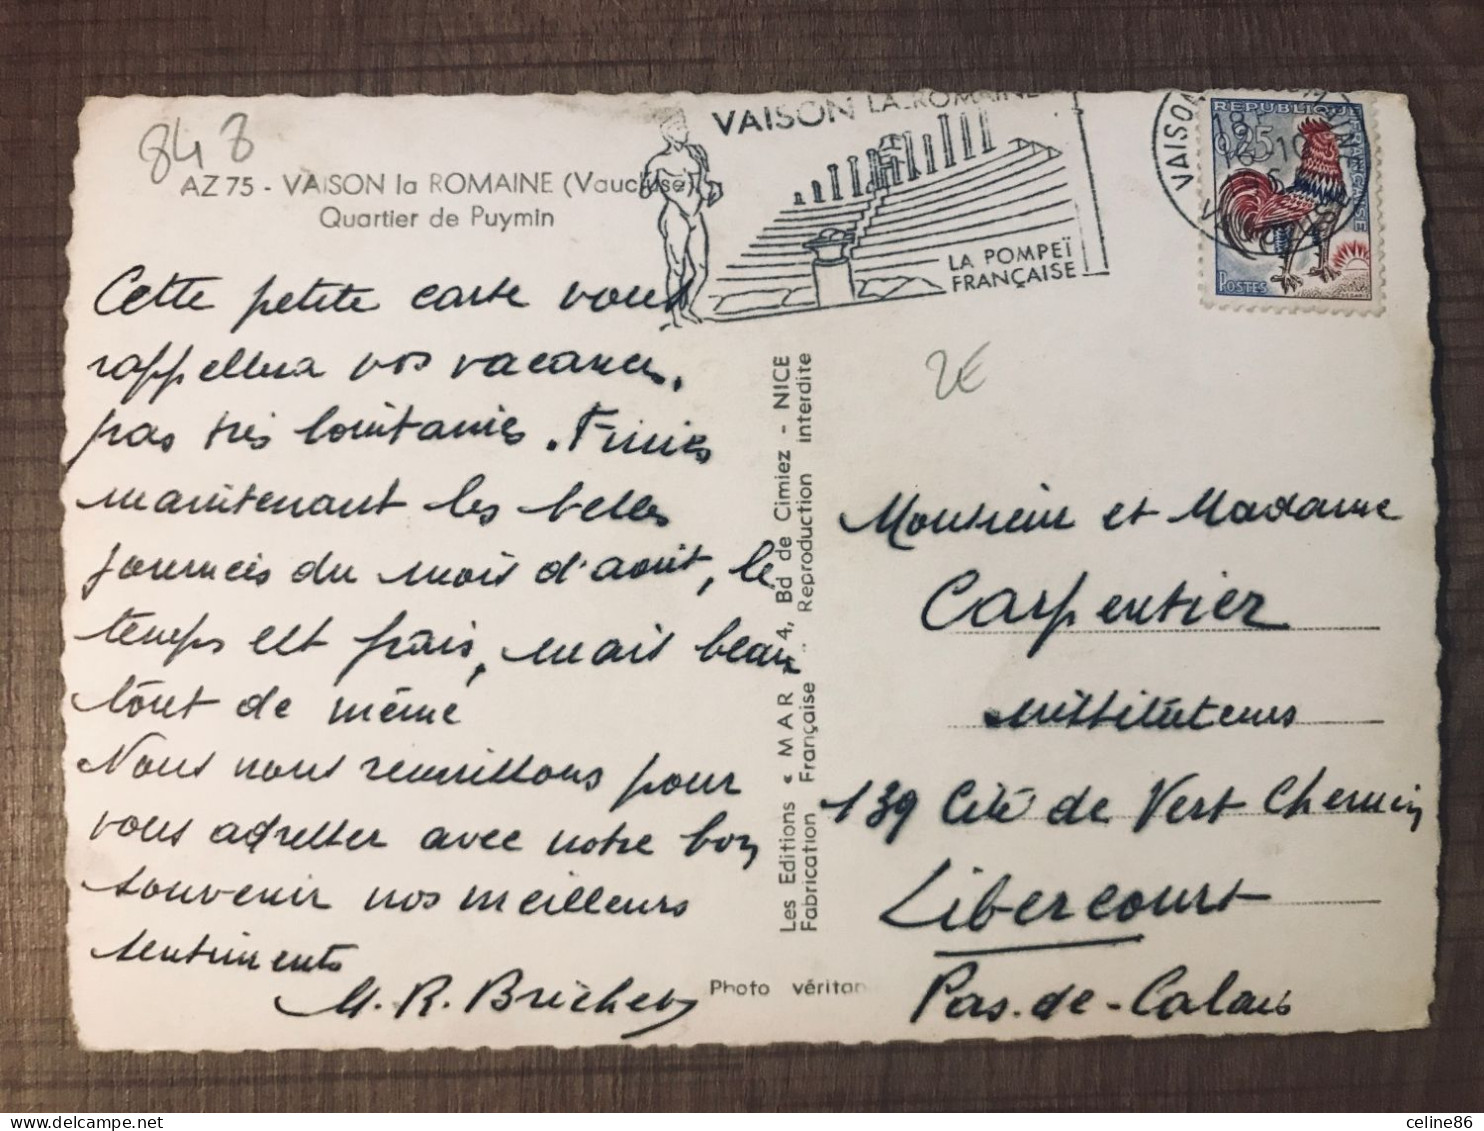 848
AZ 75 - VAISON la ROMAINE (Vaucluse)
Quartier de Puymin
VAISON LA ROMAINE
LA POMPEÏ
FRANÇAISE
VAISON
REPUBLIQUE FRANÇAISE
0,25
POSTES
2€
Cette petite carte vous
rappellera vos vacances,
pas très lointaines. Finies
maintenant les belles
journées du mois d'août, le
temps est frais, mais beau
tout de même
Nous nous réunissons pour
vous adresser avec notre bon
souvenir nos meilleurs
sentiments
M. R. Brichet
Les Editions « MAR », 4, Bd de Cimiez - NICE
Fabrication Française .. Reproduction interdite
Photo véritab
Monsieur et Madame
Carpentier
instituteurs
139 Cité de Vert Chemin
Libercourt
Pas-de-Calais
celine86